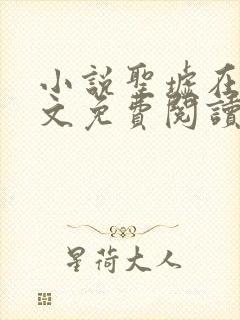 小說聖墟在
文免費閱讀
星荷大人